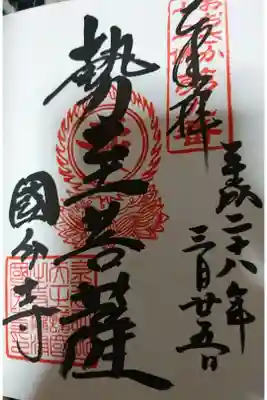 奉拝
平成二十八年
三月廿五日
勢至菩薩
國分寺